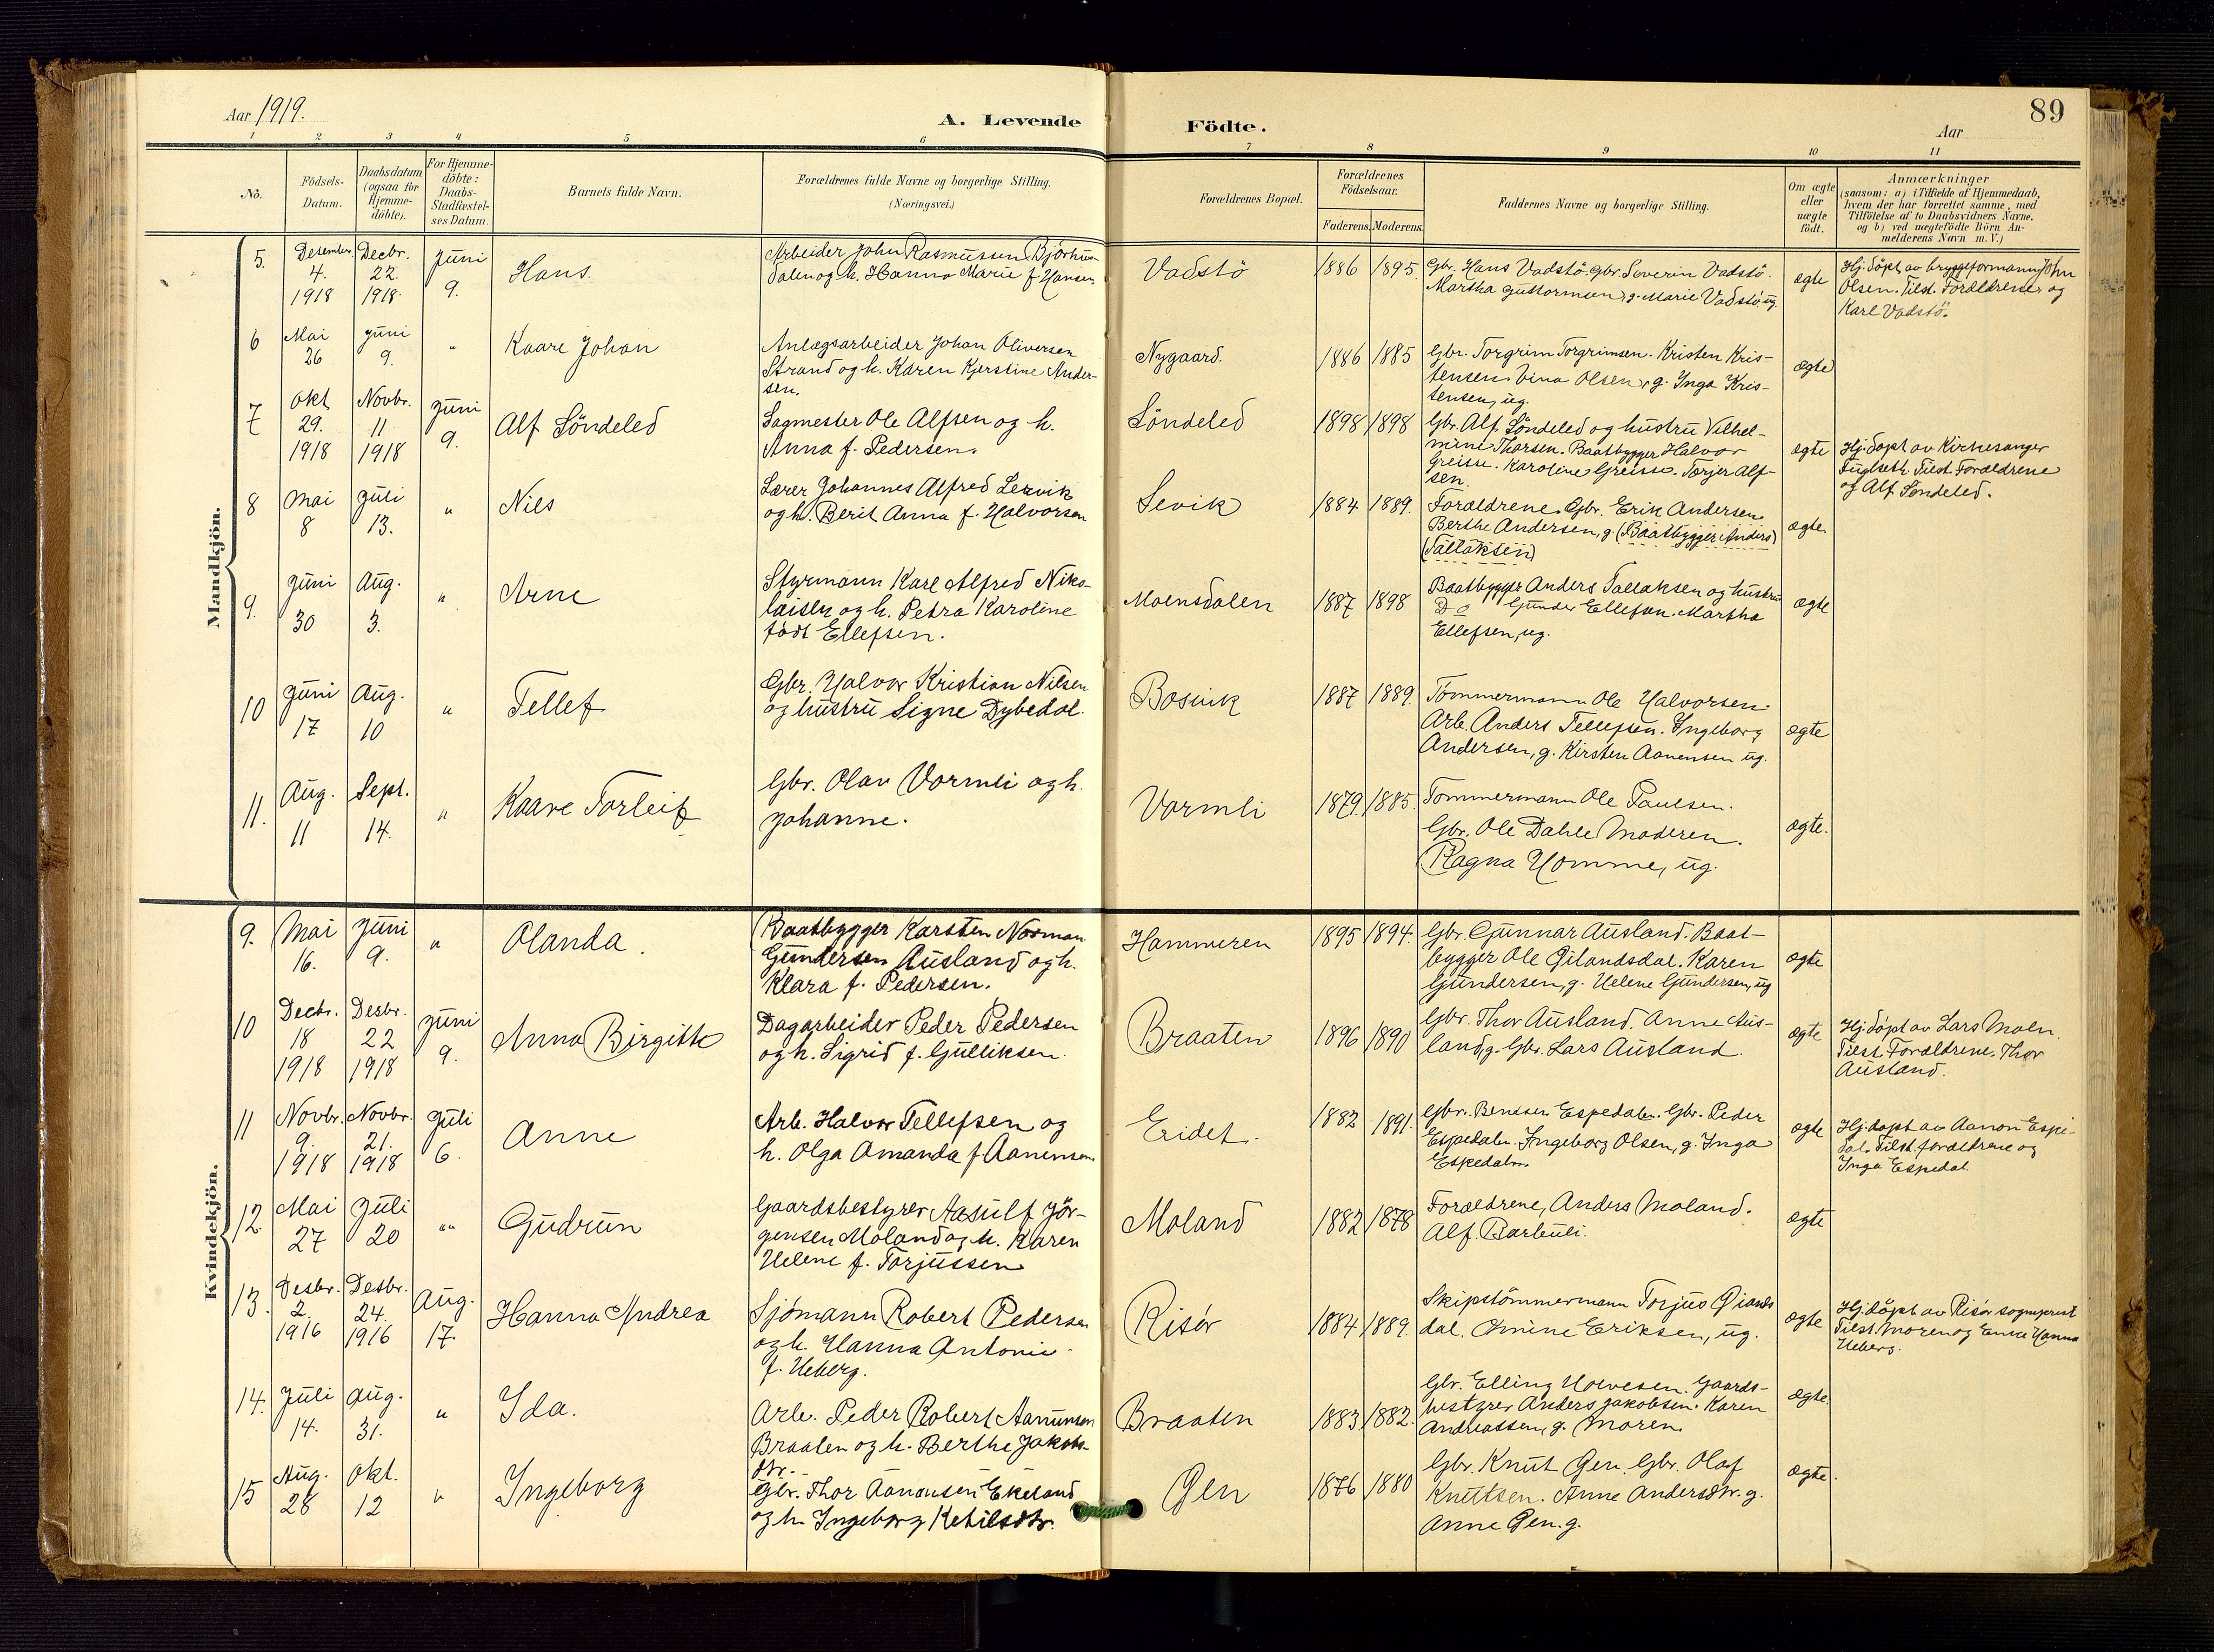 Aar 1919.
A. Levende Födte.
Aar
89
1 2 3 4 5 6 7 8 9 10 11
No.
Födsels-
Datum.
Daabsdatum
(ogsaa for
Hjemme-
döbte).
For Hjemme-
döbte:
Daabs-
Stadfæstel-
ses Datum.
Barnets fulde Navn.
Forældrenes fulde Navne og borgerlige Stilling.
(Næringsvei.)
Forældrenes Bopæl.
Forældrenes
Födselsaar.
Faderens. Moderens.
Faddernes Navne og borgerlige Stilling.
Om ægte
eller
uægte
födt.
Anmærkninger
(saasom: a) i Tilfælde af Hjemmedaab,
hvem der har forrettet samme, med
Tilföielse af to Daabsvidners Navne,
og b) ved uægtefödte Börn An-
melderens Navn m. V.)
Mandkjön.
5. Desember 4. 1918 Decbr. 22. 1918. Juni 9. Hans.
Arbeider John Rasmussen Björhus-
dalen og h. Hanna Marie f Hansen
Vadstö 1886 1895.
Gbr. Hans Vadstö. Gbr. Severin Vadstö.
Martha Guttormsen, g. Marie Vadstö, ug.
ægte
Hj. döpt av bryggeformann John
Olsen. Tilst. Forældrene og
Karl Vadstö.
6 Mai 26 Juni 9. " Kaare Johan
Anlægsarbeider Johan Oliversen
Strand og h. Karen Kjerstine Ander-
sen.
Nygaard. 1886 1885
Gbr. Torgrim Torgrimsen. Kristen Kris-
tensen. Vina Olsen, g. Inga Kris-
tensen, ug.
ægte
7 Okt 29. 1918 Novbr. 11 1918 Juni 9. Alf Söndeled
Sagmester Ole Alfsen og h.
Anna f. Pedersen.
Söndeled 1898 1898
Gbr. Alf Söndeled og hustru Vilhel-
mine Thorsen. Baatbygger Halvor
Greisse. Karoline Greisse. Torjer Alf-
sen.
ægte
Hj. döpt av Kirkesanger
Fuglseth. Tilst. Forældrene
og Alf Söndeled.
8 Mai 8 Juli 13. " Nils
Lærer Johannes Alfred Lervik
og h. Berit Anna f. Halvorsen
Sevik 1884 1889.
Forældrene. Gbr. Erik Andersen
Berthe Andersen, g. (Baatbygger Anders)
(Tallaksen)
ægte.
9. Juni 30 Aug. 3. " Arne
Styrmann Karl Alfred Niko-
laisen og h. Petra Karoline
födt Ellefsen.
Moensdalen 1887 1898
Baatbygger Anders Tallaksen og hustru
D o Gunder Ellefsen. Martha
Ellefsen, ug.
ægte
10 Juni 17 Aug. 10 " Tellef
Gbr. Halvor Kristian Nilsen
og hustru Signe Dybedal.
Bosvik 1887 1889.
Tömmermann Ole Halvorsen.
Arb. Anders Tellefsen. Ingeborg
Andersen, g. Kirsten Aanensen ug.
ægte
11. Aug. 11 Sept. 14. " Kaare Torleif
Gbr. Olav Vormli og h.
Johanne.
Vormli 1879. 1885.
Tömmermann Ole Paulsen.
Gbr. Ole Dahle. Moderen.
Ragna Homme, ug.
ægte.
Kvindekjön.
9. Mai 16. Juni 9. " Olanda.
Baatbygger Karsten Norman
Gundersen Ausland og h.
Klara f. Pedersen.
Hammeren 1895 1894.
Gbr. Gunnar Ausland. Baat-
bygger Ole Öilandsdal. Karen
Gundersen, g. Helene Gundersen, ug
ægte
10 Decbr. 18 1918 Desbr. 22 1918 Juni 9. Anna Birgitte
Dagarbeider Peder Pedersen
og h. Sigrid f. Gulliksen.
Braaten 1896 1890
Gbr. Thor Ausland. Anne Aus-
land, g. Gbr. Lars Ausland.
ægte
Hj. döpt av Lars Moen.
Tilst. Forældrene, Thor
Ausland.
11 Novbr. 9. 1918 Novbr. 21. 1918 Juli 6. Anne
Arb. Halvor Tellefsen og
h. Olga Amanda f Aanensen
Eidet. 1882 1891.
Gbr. Espedalen. Gbr. Peder
Espedalen. Ingeborg Olsen, g. Inga
Espedalen.
ægte
Hj. döpt av Aanon Espe-
dal. Tilst. forældrene og
Inga Espedal.
12. Mai 27 Juli 20 " Gudrun
Gaardsbestyrer Aasulf Jör-
gensen Moland og h. Karen
Helene f. Torjussen
Moland 1882 1878
Forældrene, Anders Moland.
Alf. Barbuli.
ægte
13. Desbr. 2. 1916 Desbr. 24. 1916 Aug. 17. Hanna Andrea
Sjömann Robert Pedersen
og h. Hanna Antonie
f. Heberg.
Risör 1884 1889.
Skipstömmermann Torjus Öiands
dal. Omine Eriksen, ug.
ægte
Hj. döpt av Risör sogneprest
Tilst. Moren og Enke Hanna
Heberg.
14. Juli 14. Aug. 31. " Ida.
Arb. Peder Robert Aanunsen
Braaten og h. Berthe Jakobs-
dtr.
Braaten 1883. 1882.
Gbr. Elling Gaards-
bestyrer Anders Jakobsen. Karen
Andreassen, g. Moren.
ægte.
15 Aug. 28 Okt. 12 " Ingeborg
Gbr. Thor Aanonsen Ekeland
og h. Ingeborg Ketilsdtr.
Gjen 1876 1880
Gbr. Knut Gjen. Gbr. Olaf
Knutsen. Anne Andersdtr. g.
Anne Gjen. g.
ægte.